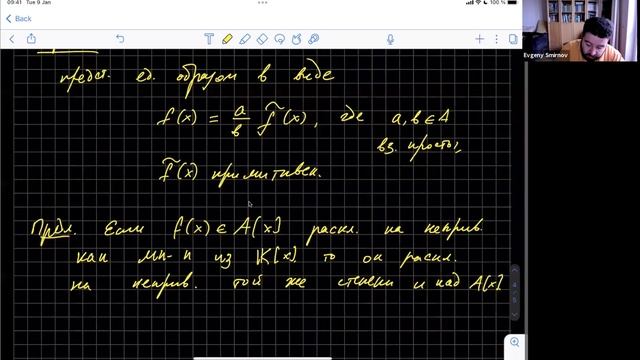 09:41 Tue 9 Jan
100 %
Back
Evgeny Smirnov
предст. ед. образом в виде
f(x) = a/b f̃(x), где a, b ∈ A
вз. просты,
f̃(x) примитивен.
Предл. Если f(x) ∈ A[x] раскл. на неприв.
как мн-н из K[x] то он раскл.
на неприв. той же степени и над A[x]